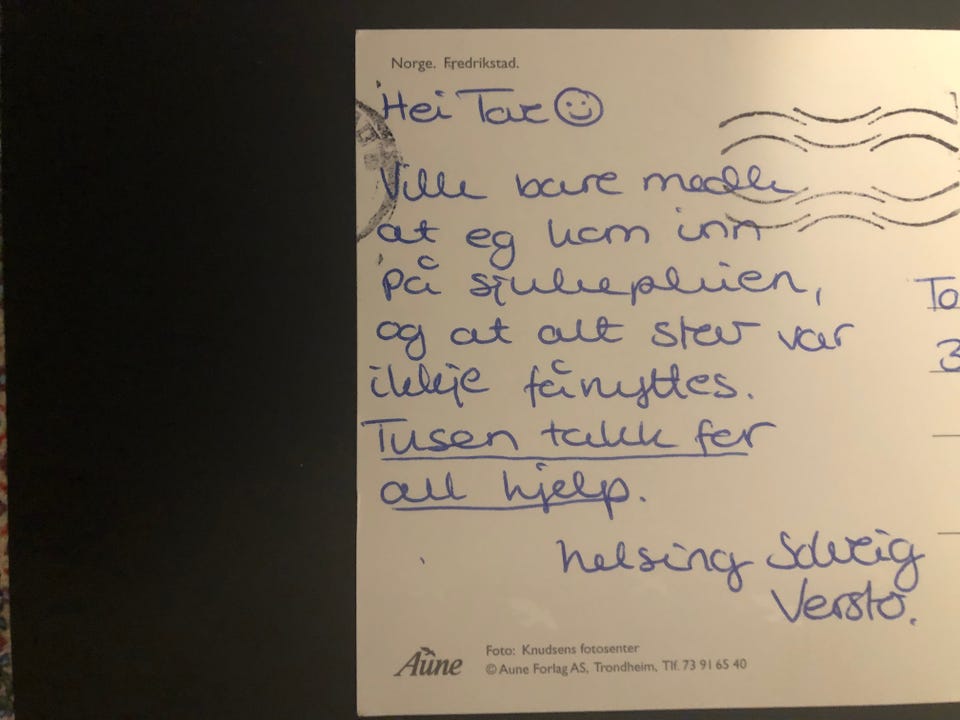 Norge. Fredrikstad.
Hei Tore ☺
Ville bare medle
at eg kom inn
på sjukepleien,
og at alt stev var
ikkje fånyttes.
Tusen takk for
all hjelp.
To
3
helsing Solveig
Versto.
Aune
Foto: Knudsens fotosenter
© Aune Forlag AS, Trondheim, Tlf. 73 91 65 40